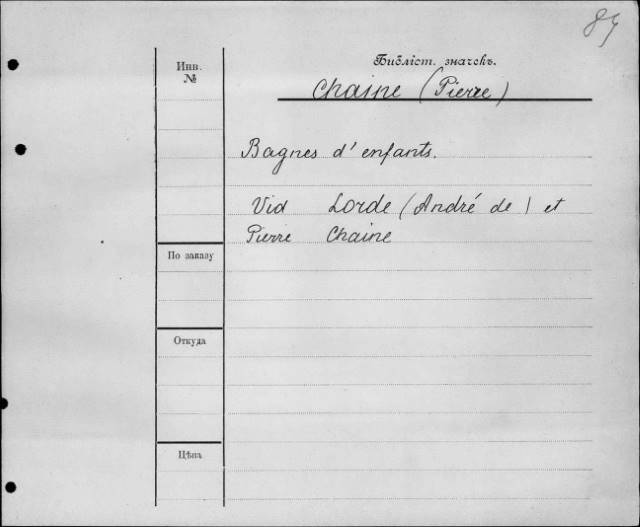 84
Инв.
№
Библіст. значекъ.
Chaine (Pierre)
Bagnes d'enfants.
Vid Lorde (André de) et
Pierre Chaine
По заказу
Откуда
Цѣна